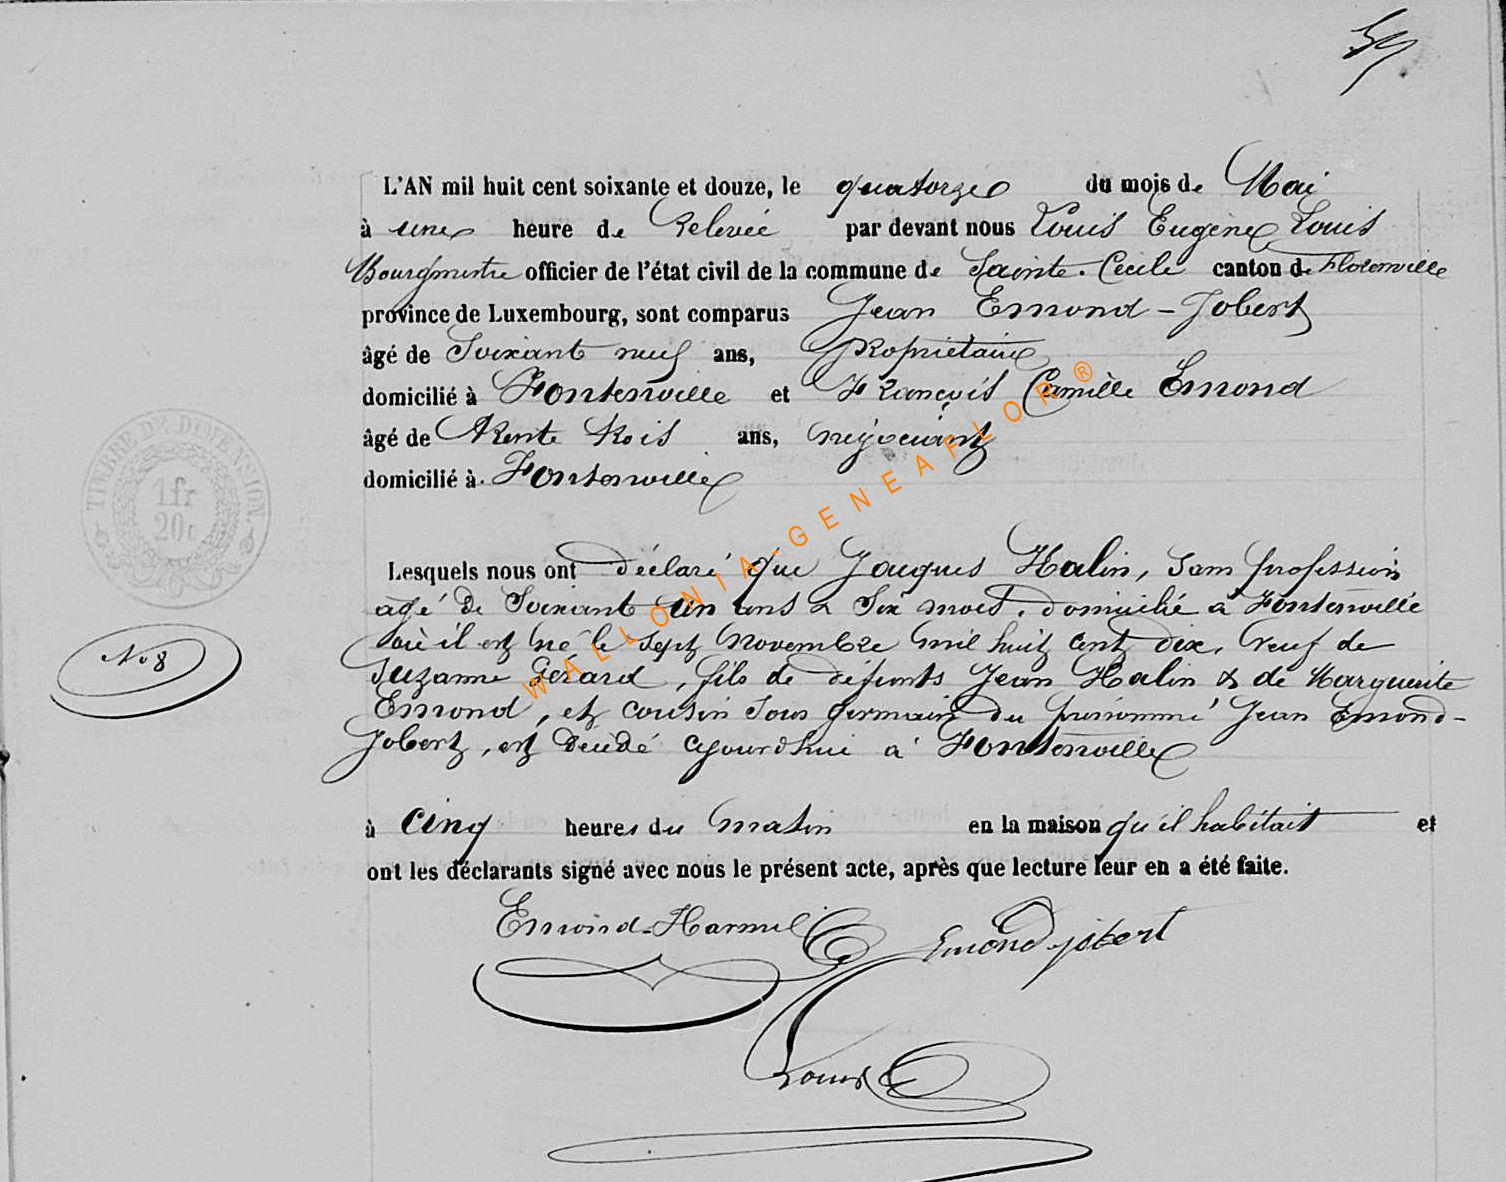 59
L'AN mil huit cent soixante et douze, le quatorze du mois de Mai
à une heure de Relevée par devant nous Louis Eugène Louis
Bourgmestre officier de l'état civil de la commune de Sainte-Cecile canton de Florenville
province de Luxembourg, sont comparus Jean Emond-Jobert
âgé de Soixant neuf ans, propriétaire
domicilié à Fontenoille et François Camille Emond
âgé de trente trois ans, négociant
domicilié à Fontenoille
TIMBRE DE DIMENSION.
1fr
20c
Lesquels nous ont déclaré que Jacques Halin, Sans profession
agé de Soixant un ans & Six mois, domicilié à Fontenoille
où il est né le sept Novembre mil huit cent dix, Veuf de
No 8
Suzanne Gérard, fils de défunts Jean Halin & de Marguerite
Emond, et cousin Sous germain du prénommé Jean Emond-
Jobert, est décédé ajourdhui à Fontenoille
à Cinq heures du Matin en la maison qu'il habitait et
ont les déclarants signé avec nous le présent acte, après que lecture leur en a été faite.
Emond-Harmel Emond jobert
Louis
WALLONIA-GENEAFLOR®